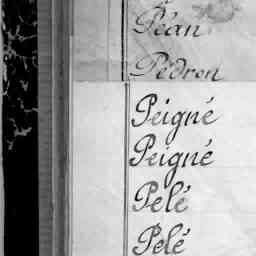 Péan
Pédron
Peigné
Peigné
Pelé
Pelé